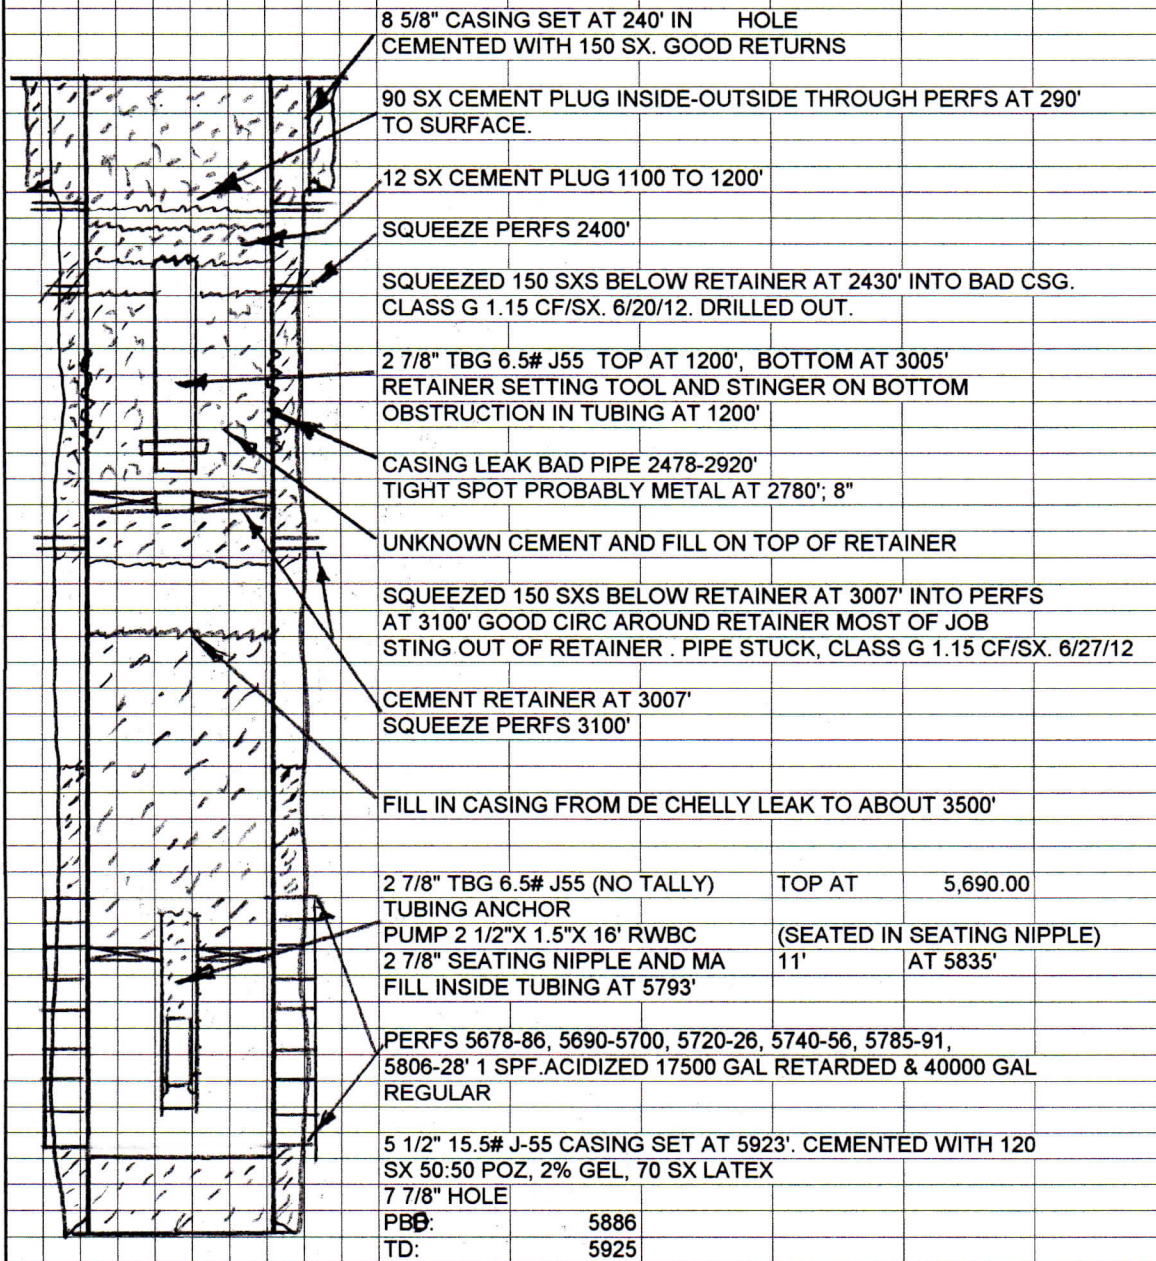 8 5/8" CASING SET AT 240' IN HOLE
CEMENTED WITH 150 SX. GOOD RETURNS
90 SX CEMENT PLUG INSIDE-OUTSIDE THROUGH PERFS AT 290'
TO SURFACE.
12 SX CEMENT PLUG 1100 TO 1200'
SQUEEZE PERFS 2400'
SQUEEZED 150 SXS BELOW RETAINER AT 2430' INTO BAD CSG.
CLASS G 1.15 CF/SX. 6/20/12. DRILLED OUT.
2 7/8" TBG 6.5# J55 TOP AT 1200', BOTTOM AT 3005'
RETAINER SETTING TOOL AND STINGER ON BOTTOM
OBSTRUCTION IN TUBING AT 1200'
CASING LEAK BAD PIPE 2478-2920'
TIGHT SPOT PROBABLY METAL AT 2780'; 8"
UNKNOWN CEMENT AND FILL ON TOP OF RETAINER
SQUEEZED 150 SXS BELOW RETAINER AT 3007' INTO PERFS
AT 3100' GOOD CIRC AROUND RETAINER MOST OF JOB
STING OUT OF RETAINER . PIPE STUCK, CLASS G 1.15 CF/SX. 6/27/12
CEMENT RETAINER AT 3007'
SQUEEZE PERFS 3100'
FILL IN CASING FROM DE CHELLY LEAK TO ABOUT 3500'
2 7/8" TBG 6.5# J55 (NO TALLY) TOP AT 5,690.00
TUBING ANCHOR
PUMP 2 1/2"X 1.5"X 16' RWBC (SEATED IN SEATING NIPPLE)
2 7/8" SEATING NIPPLE AND MA 11' AT 5835'
FILL INSIDE TUBING AT 5793'
PERFS 5678-86, 5690-5700, 5720-26, 5740-56, 5785-91,
5806-28' 1 SPF.ACIDIZED 17500 GAL RETARDED & 40000 GAL
REGULAR
5 1/2" 15.5# J-55 CASING SET AT 5923'. CEMENTED WITH 120
SX 50:50 POZ, 2% GEL, 70 SX LATEX
7 7/8" HOLE
5886
TD: 5925